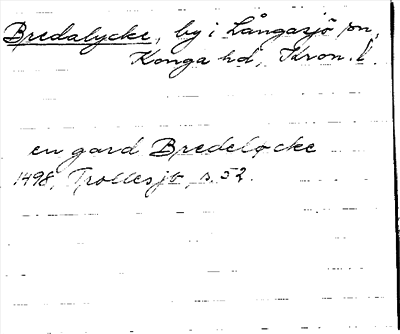 Bredalycke, by i Långasjö sn,
Konga hd, Kron. l.
en gard Bredeløcke
1498, Trollesjb, s. 52.